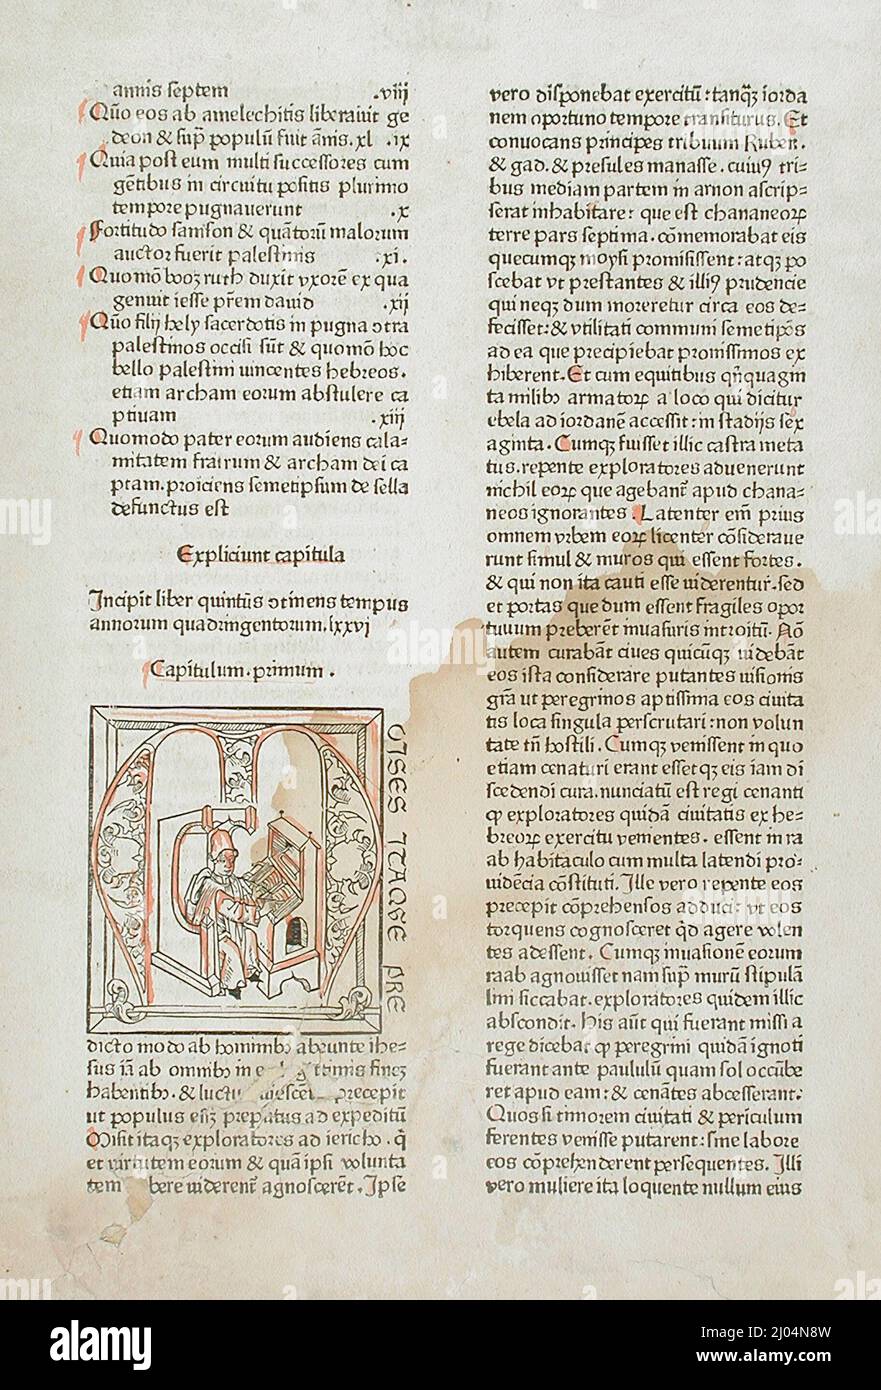 annis septem .viij
Quō eos ab amelechitis liberauit ge
deon & sup̄ populū fuit ānis. xl .ix
Quia post eum multi successores cum
gētibus in circuitu positis plurimo
tempore pugnauerunt .x
Fortitudo samson & quātorū malorum
auctor fuerit palestinis .xi.
Quomō booz ruth duxit vxorē ex qua
genuit iesse p̄rem dauid .xij
Quō filij hely sacerdotis in pugna ↄtra
palestinos occisi sūt & quomō hoc
bello palestini uincentes hebreos.
etiam archam eorum abstulere ca
ptiuam .xiij
Quomodo pater eorum audiens cala=
mitatem fratrum & archam dei ca
ptam. proiciens semetipsum de sella
defunctus est
Expliciunt capitula
Incipit liber quintūs ↄtinens tempus
annorum quadringentorum. lxxvj
Capitulum. primum.
M
OISES ITAQVE PRE
dicto modo ab hominibꝫ abeunte ihe=
sus iā ab omnibꝫ in finꝫ
habentibꝫ. & luctu precepit
ut populus esꝫ preparatus ad expeditū
Misit itaqꝫ exploratores ad iericho. q̄
et uirtutem eorum & quā ipsi volunta
tem bere uiderent̄ agnoscerēt. Ipse
vero disponebat exercitū: tanqꝫ iorda
nem oportuno tempore transiturus. Et
conuocans principes tribuum Ruben.
& gad. & presules manasse. cuiuꝰ tri=
bus mediam partem in arnon ascrip=
serat inhabitare: que est chananeoꝝ
terre pars septima. cōmemorabat eis
quecumqꝫ moysi promisissent: atqꝫ po
scebat vt prestantes & illiꝰ prudencie
qui neqꝫ dum moreretur circa eos de=
fecisset: & vtilitati communi semetip̄os
ad ea que precipiebat promissimos ex
hiberent. Et cum equitibus qn̄quagin
ta milibꝫ armatoꝝ a loco qui dicitur
ebela ad iordanē accessit: in stadijs sex
aginta. Cumqꝫ fuisset illic castra meta
tus. repente exploratores aduenerunt
nichil eoꝝ que agebant̄ apud chana=
neos ignorantes. Latenter em̄ prius
omnem vrbem eoꝝ licenter cōsideraue
runt simul & muros qui essent fortes.
& qui non ita cauti esse uiderentur̄. sed
et portas que dum essent fragiles opor
tuuum preberēt inuasuris introitū. Nō
autem curabāt ciues quicūqꝫ uidebāt
eos ista considerare putantes uisionis
gr̄a ut peregrinos aptissima eos ciuita
tis loca singula perscrutari: non volun
tate tn̄ hostili. Cumqꝫ venissent in quo
etiam cenaturi erant essetqꝫ eis iam di
scedendi cura. nunciatū est regi cenanti
ꝙ exploratores quidā ciuitatis ex he=
breoꝝ exercitu venientes. essent in ra
ab habitaculo cum multa latendi pro=
uidēcia cōstituti. Ille vero repente eos
precepit cōprehensos adduci: vt eos
torquens cognosceret q̄d agere volen
tes adessent. Cumqꝫ inuasionē eorum
raab agnouisset nam sup̄ murū stipulā
lini siccabat. exploratores quidem illic
abscondit. His aūt qui fuerant missi a
rege dicebat ꝙ peregrini quidā ignoti
fuerant ante paululū quam sol occūbe
ret apud eam: & cenātes abcesserant.
Quos si timorem ciuitati & periculum
ferentes venisse putarent: sine labore
eos cōprehenderent persequentes. Illi
vero muliere ita loquente nullum eius
alamy
Image ID: 2J04N8W
www.alamy.com